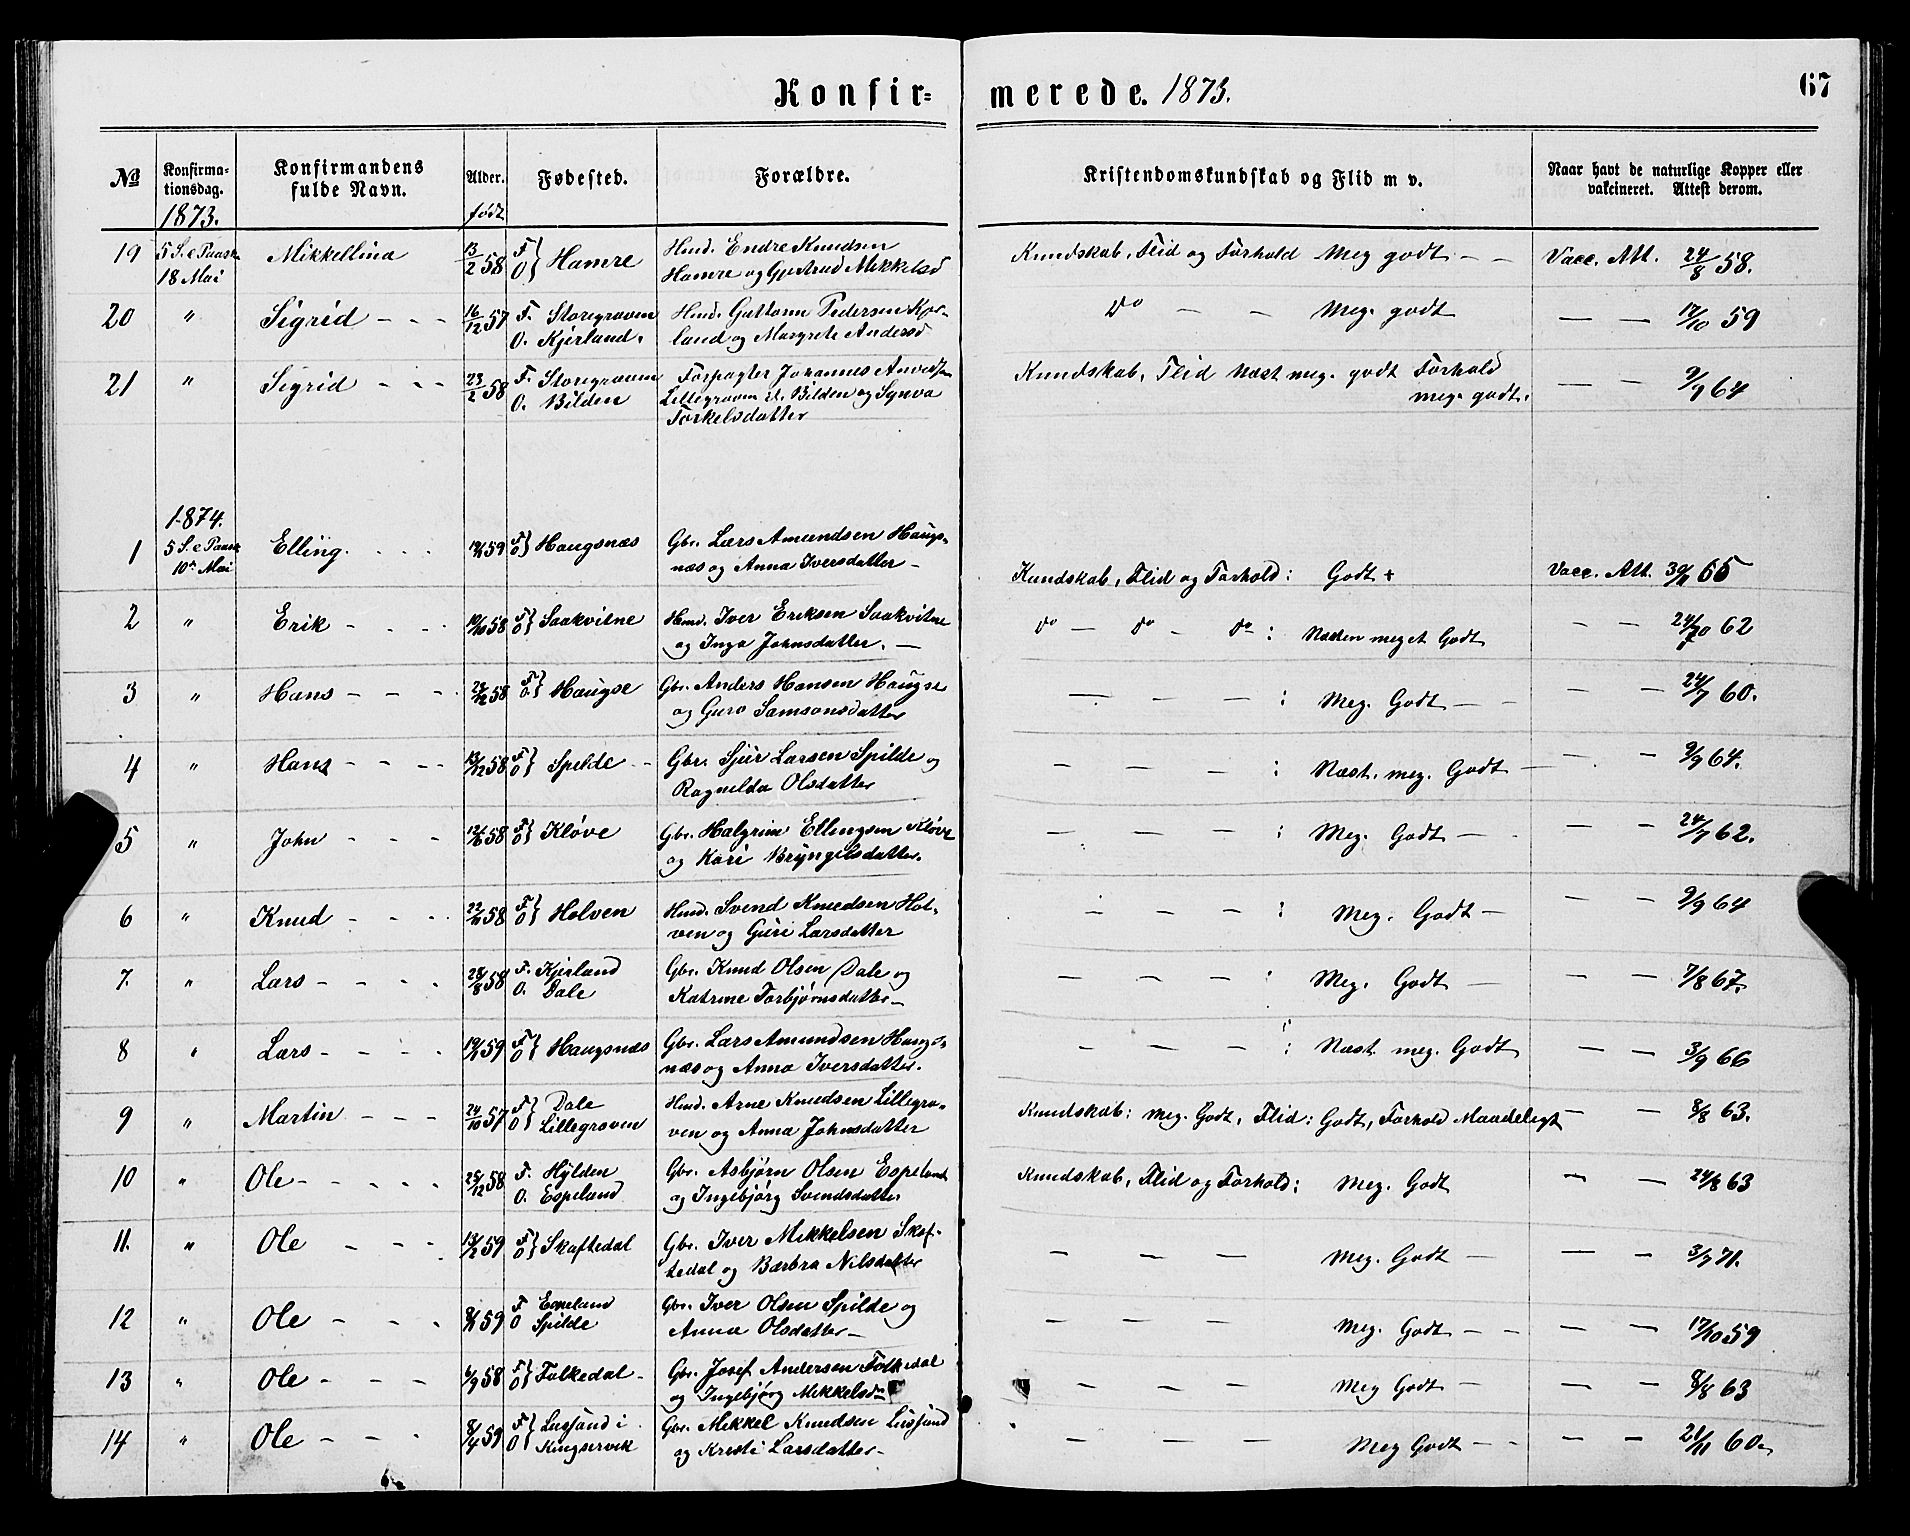 Konfir= merede. 1873. 67
№ Konfirma- Konfirmandens Alder. Fødested. Forældre. Kristendomskundskab og Flid m v. Naar havt de naturlige Kopper eller
tionsdag. fulde Navn. vakcineret. Attest derom.
1873. født
19 5 S. e Paask Mikkellina 13/2 58 F O } Hamre Hmd. Endre Knudsen Kundskab, Flid og Forhold Meg godt - - Vacc. Att. 24/8 58.
18 Mai Hamre og Gjertrud Mikkelsd
20 " Sigrid - - - 16/12 57 F. Storegraven Hmd. Guttorm Pedersen Kjer- Do - - Meg. godt — — 17/10 59
O. Kjerland. land og Margrete Andersd
21 " Sigrid - - - 23/2 58 F. Storegraven Forpagter Johannes Kundskab, Flid Næst meg. godt Forhold — — 9/9 64
O. Bilden Lillegraven Bilden og Synva meg. godt.
Torkelsdatter
1874.
1 5 S. e Paask Elling. - - - 59 F O } Haugsnæs Gbr. Lars Amundsen Haugs-
10de Mai næs og Anna Iversdatter - Kundskab, Flid og Forhold: Godt + Vacc. Att. 65
2 " Erik - - - 58 F O } Saakvitne Hmd. Iver Eriksen Saakvitne Do — Do - Do : Næsten meget Godt — — 62
og Inga Johnsdatter. —
3 " Hans - - - 58 F O } Haugse Gbr. Anders Hansen Haugse — - - - : Meg. Godt - - — — 24/7 60.
og Guro Samsonsdatter
4 " Hans - - - 58 F O } Spilde - Gbr. Sjur Larsen Spilde og - - - : Næst. meg. Godt — - — 9/9 64.
Ragnilda Olsdatter
5 " John - - - 58 F O } Kløve Gbr. Halgrim Ellingsen Kløve - - - : Meg. Godt - - — — 24/7 62.
og Kari Bryngelsdatter.
6 " Knud - - - 58 F O } Holven Hmd. Svend Knudsen Hol- - - - : Meg. Godt - — — 9/9 64
ven og Guri Larsdatter
7. " Lars - - - - 28/8 58 F. Kjerland Gbr. Knud Olsen Dale og - - - : Meg. Godt - — — 7/8 67.
O. Dale Katrine Torbjørnsdatter -
8 " Lars - - - - 59 F O } Haugsnæs Gbr. Lars Amundsen Haugs- - - - : Næst. meg. Godt — — 3/9 66
næs og Anna Iversdatter.
9 " Martin - - - 24/10 57 F O } Dale Hmd. Arne Knudsen Lillegra- Kundskab: Meg. Godt, Flid: Godt, Forhold Maadeligt — — 8/8 63.
Lillegraven ven og Anna Johnsdatter
10 " Ole - - - - - 25/12 58 F. Hylden Gbr. Asbjørn Olsen Espeland Kundskab, Flid og Forhold: Meg. Godt — — 24/8 63
O. Espeland og Ingebjørg Svendsdatter
11. " Ole - - - 13/2 59 F O } Skaftedal Gbr. Iver Mikkelsen Skaf- - - - Meg. Godt - — — 3/7 71.
tedal og Barbra Nilsdatter
12 " Ole - - - 59 F Espeland Gbr. Iver Olsen Spilde og - - - Meg. Godt - - — — 17/10 59
O Spilde Anna Olsdatter -
13 " Ole - - - 6/9 58 F O } Folkedal - Gbr. Josef Andersen Folkedal - - - Meg Godt - — — 8/8 63
og Ingebjørg Mikkelsd
14 " Ole - - - 8/4 59 F O } Lussand i Gbr. Mikkel Knudsen Lussand - - - Meg Godt - - — — 21/11 60.
Kingservik og Kristi Larsdatter -